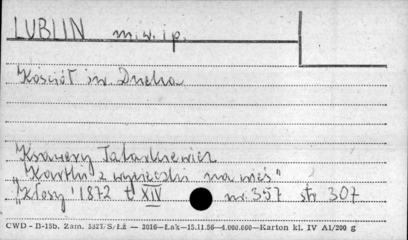 LUBLIN m. w. i p.
Kościół św. Ducha
Ksawery Tatarkiewicz
"Kartki z wycieczki na wieś"
"Kłosy" 1872 t XIV nr. 357 str 307
CWD - D-15b. Zam. 5321/S/Łż — 3016—Łak—15.11.56—4.000.000—Karton kl. IV A1/200 g